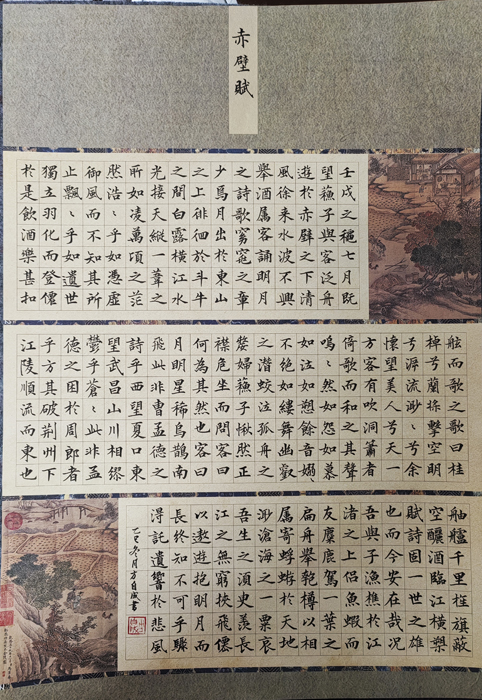 赤壁賦
壬戌之穐七月既
望蘇子與客泛舟
遊於赤壁之下清
風徐来水波不興
舉酒属客誦明月
之詩歌窈窕之章
少焉月出於東山
之上徘徊於斗牛
之間白露橫江水
光接天縱一葦之
所如凌萬頃之茫
然浩〻乎如憑虛
御風而不知其所
止飄〻乎如遺世
獨立羽化而登僊
於是飲酒樂甚扣
舷而歌之歌曰桂
棹兮蘭槳擊空明
兮泝流渺〻兮余
懷望美人兮天一
方客有吹洞簫者
倚歌而和之其聲
嗚〻然如怨如慕
如泣如愬餘音嫋〻
不絕如縷舞幽壑
之潜蛟泣孤舟之
嫠婦蘇子愀然正
襟危坐而問客曰
何為其然也客曰
月明星稀烏鵲南
飛此非曹孟德之
詩乎西望夏口東
望武昌山川相繆
鬱乎蒼〻此非孟
德之困於周郎者
乎方其破荆州下
江陵順流而東也
舳艫千里旌旗蔽
空釃酒臨江橫槊
賦詩固一世之雄
也而今安在哉况
吾與子漁樵於江
渚之上侣魚蝦而
友麋鹿駕一葉之
扁舟舉匏樽以相
属寄蜉蝣於天地
渺滄海之一粟哀
吾生之須臾羨長
江之無窮挾飛僊
以遨遊抱明月而
長終知不可乎驟
淂託遺響於悲風
乙巳冬月方自成書